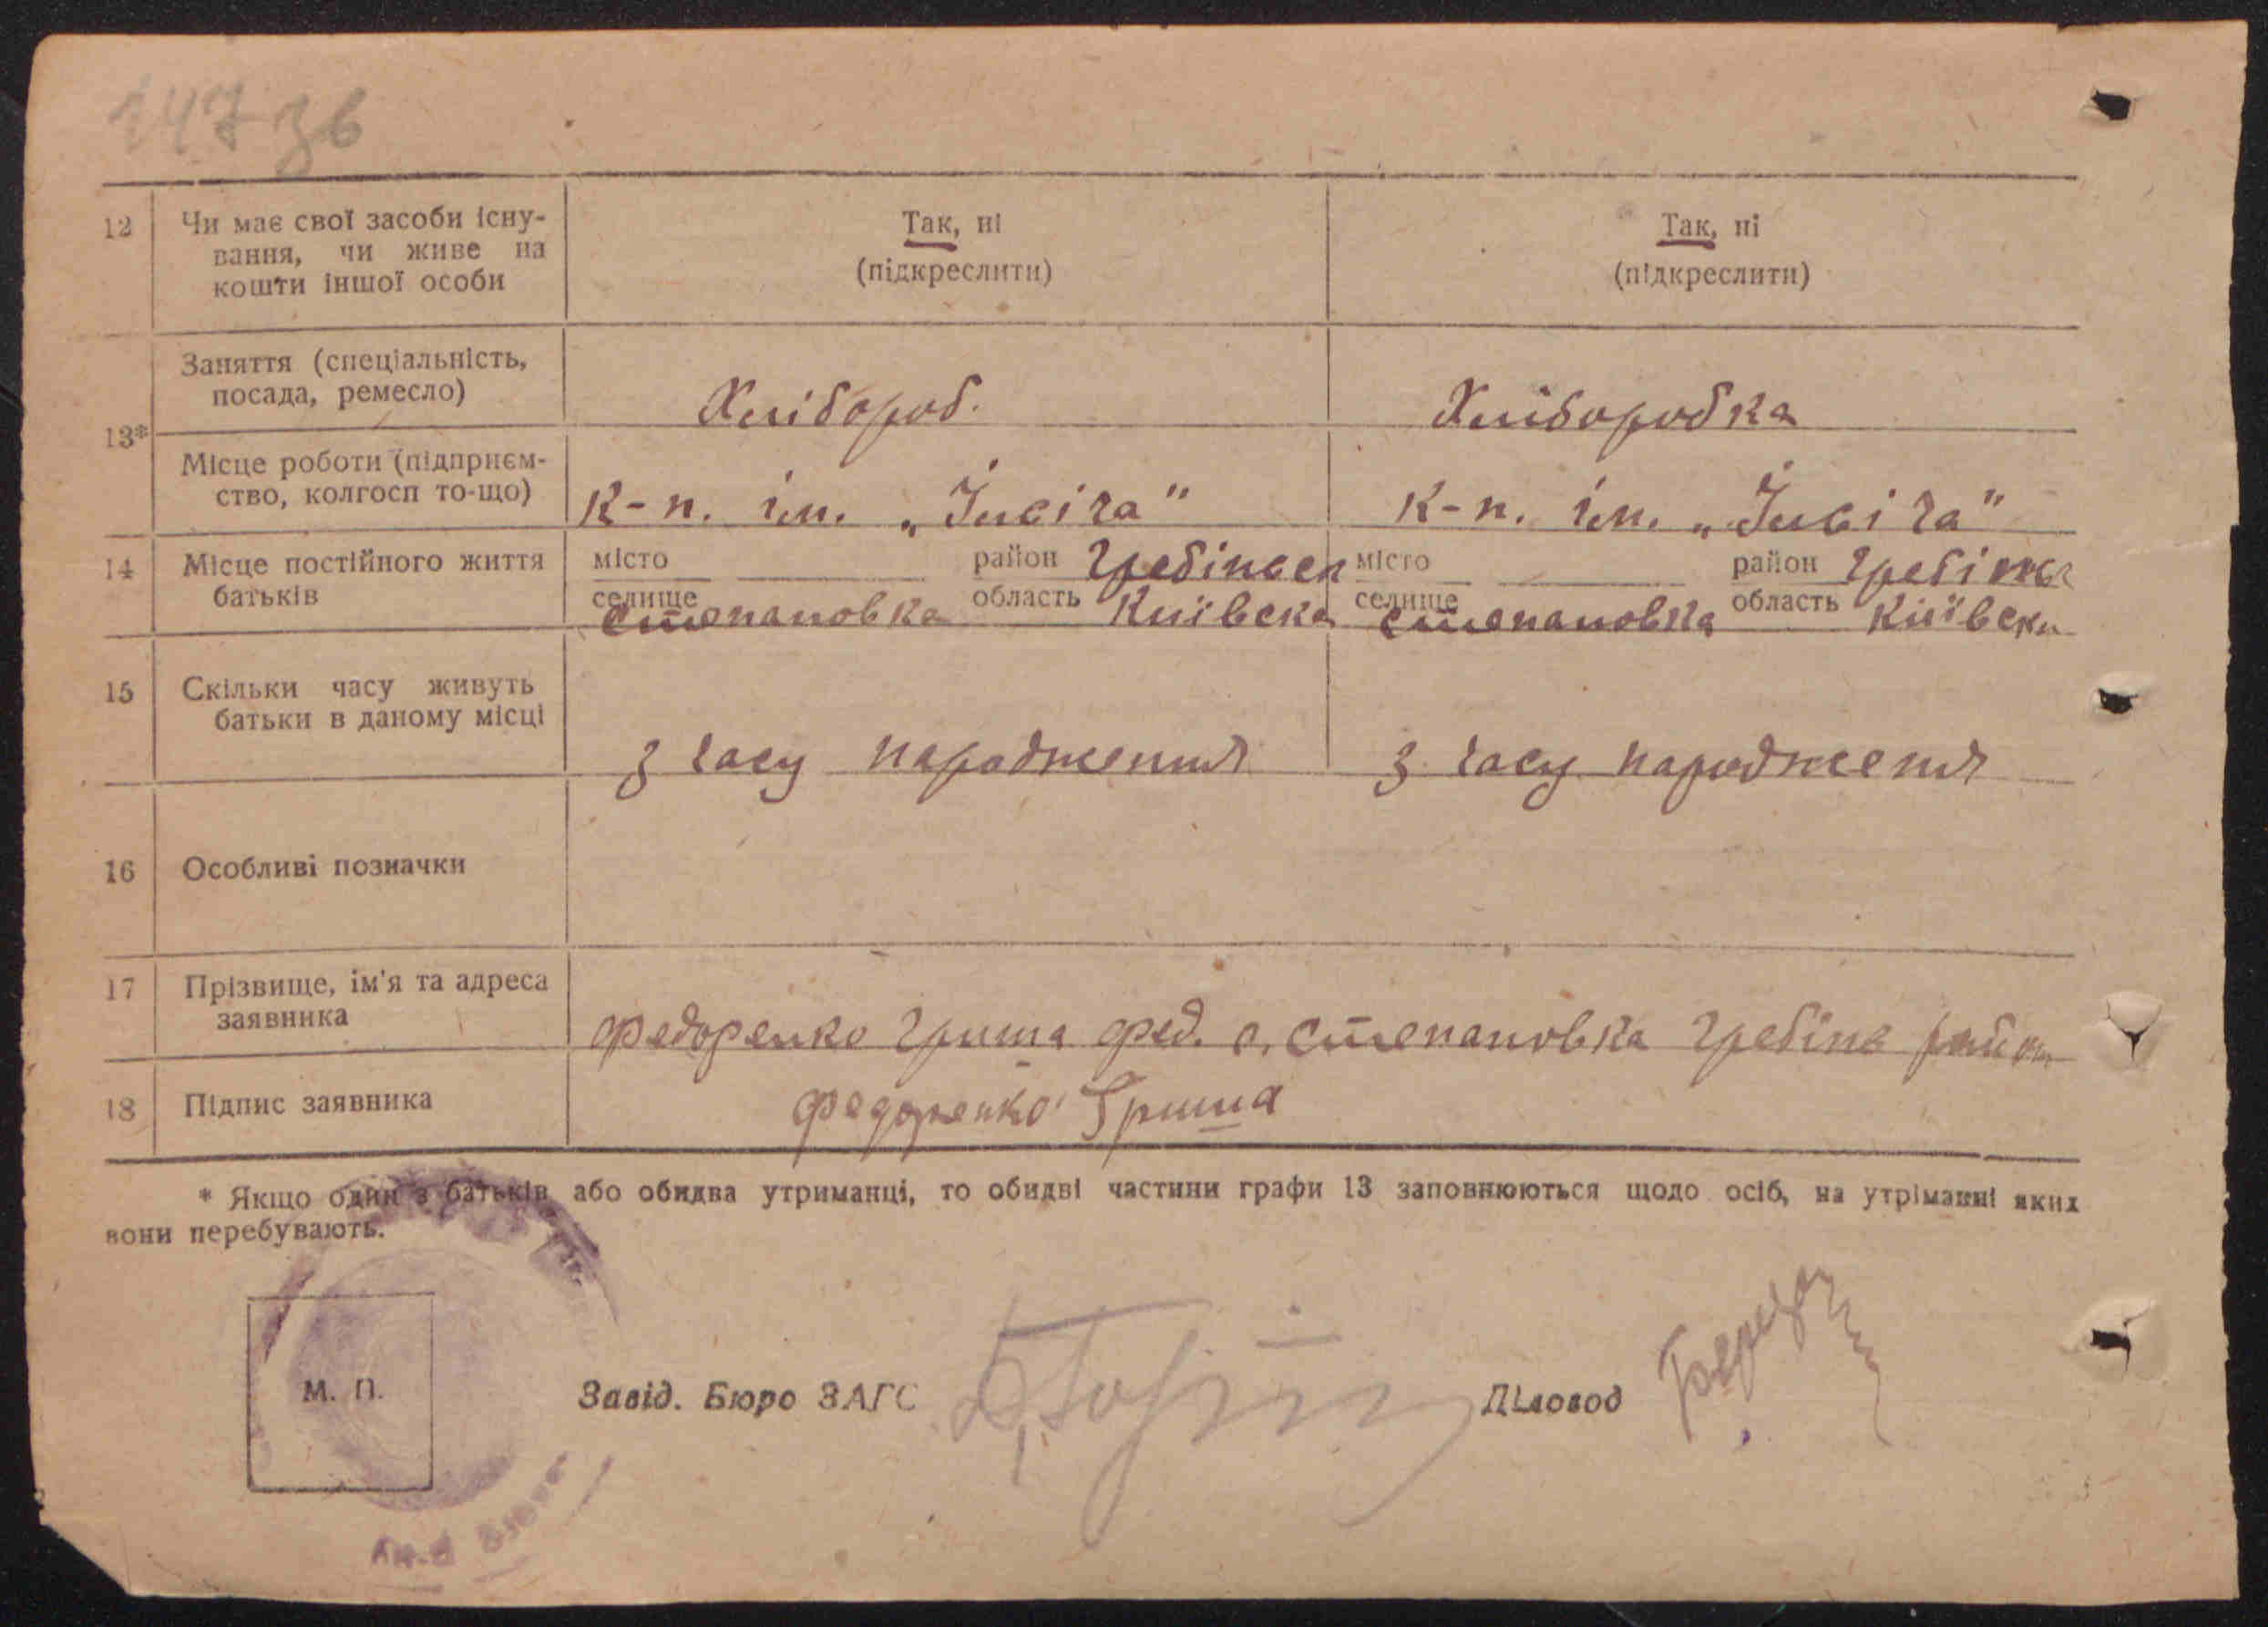 147 зв
12 Чи має свої засоби існу- Так, ні Так, ні
вання, чи живе на (підкреслити) (підкреслити)
кошти іншої особи
13* Заняття (спеціальність, Хлібороб. Хліборобка
посада, ремесло)
Місце роботи (підприєм- К-п. ім. „Ілліча" К-п. ім. „Ілліча"
ство, колгосп то-що)
14 Місце постійного життя місто район Гребінсь місто район
батьків селище Степановка область Київська селище Степановка область Київськ
15 Скільки часу живуть
батьки в даному місці з часу народження з часу народження
16 Особливі позначки
17 Прізвище, ім'я та адреса
заявника Федоренко Гриша Фед. с. Степановка Гребінс район
18 Підпис заявника Федоренко Гриша
* Якщо один з батьків або обидва утриманці, то обидві частини графи 13 заповнюються щодо осіб, на утріманні яких
вони перебувають.
М. П. Завід. Бюро ЗАГС Діловод